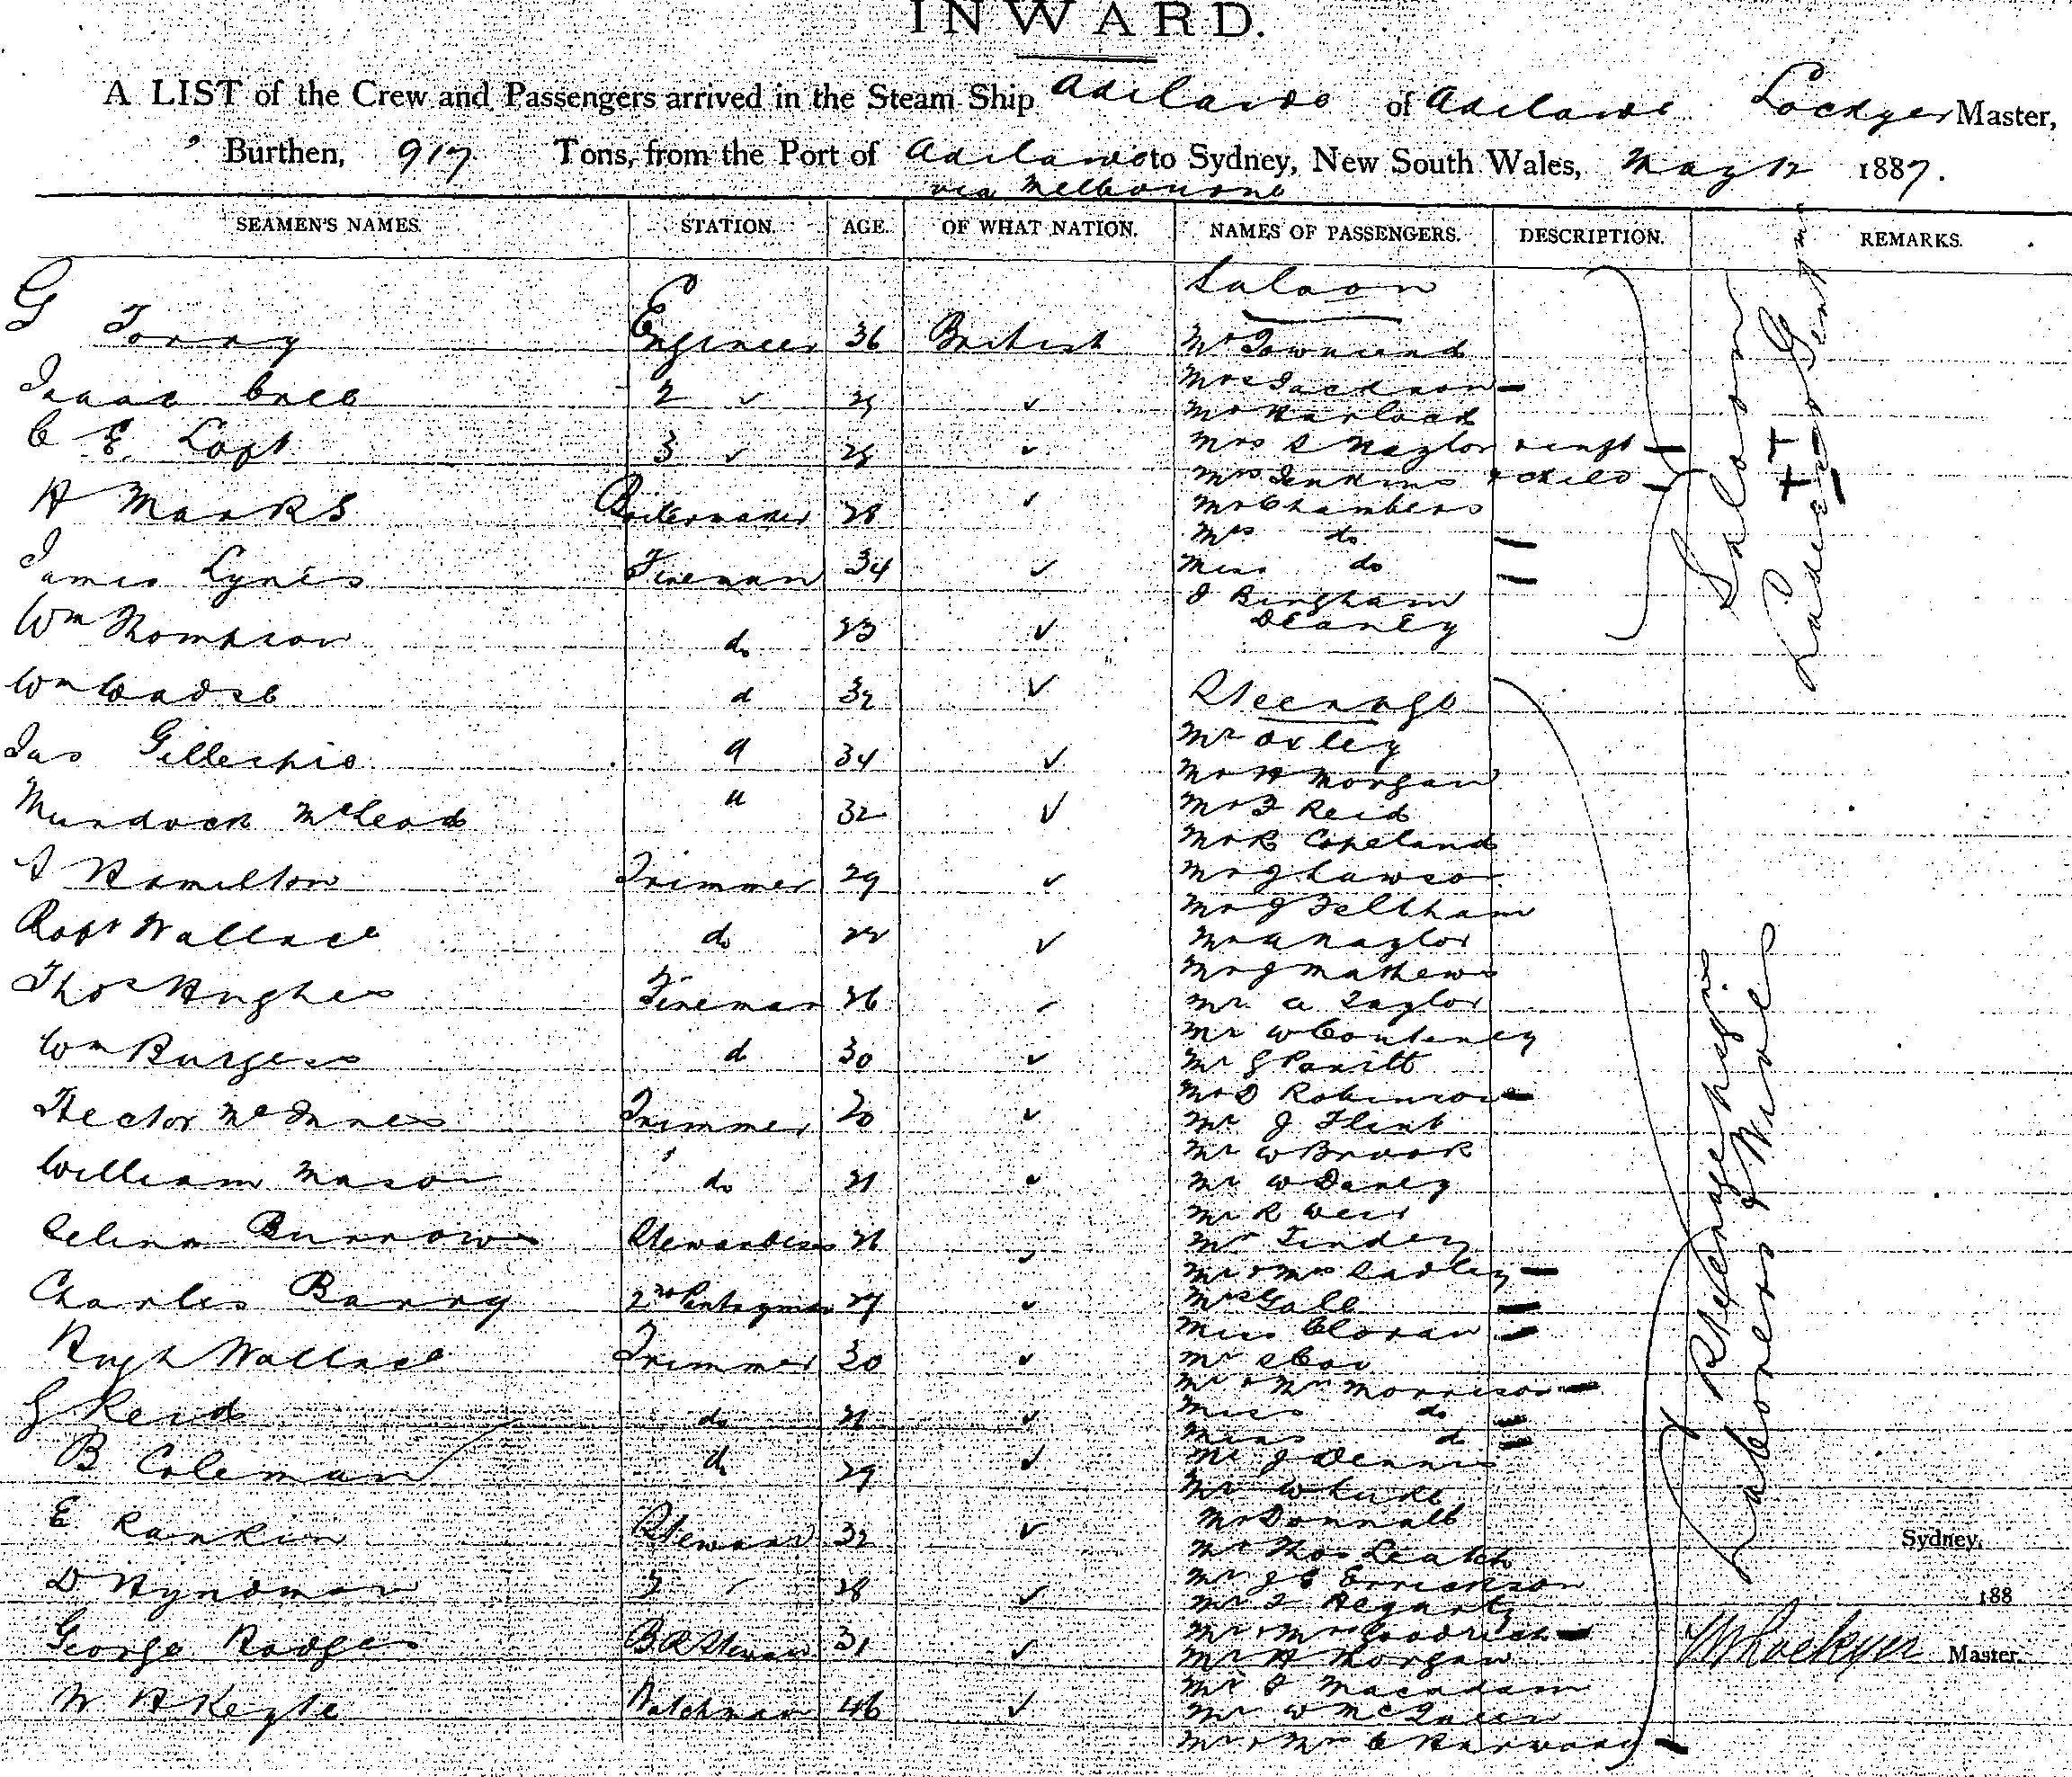 INWARD.
A LIST of the Crew and Passengers arrived in the Steam Ship Adelaide of Adelaide Lockyer Master,
Burthen, 917 Tons, from the Port of Adelaide to Sydney, New South Wales, May 12 1887.
via Melbourne
SEAMEN'S NAMES. STATION. AGE. OF WHAT NATION. NAMES OF PASSENGERS. DESCRIPTION. REMARKS.
Saloon
G Torry Engineer 36 British Mr Townsend
Mrs Jackson
Isaac 2 ✓ 25 ✓ Mr Harlock
C E Loft 3 ✓ 25 ✓ Mrs S Naylor & inft
Mrs Jenkins & child
H Marks Boilermaker 28 ✓ Mr Chambers
Mrs do
James Lynes Fireman 34 ✓ Miss do
J Bingham
Wm Thompson do 23 ✓ Deaney
Wm do 32 ✓ Steerage
Jas Gillespie " 34 ✓ Mr Oxley
Mr H Morgan
Murdock McLeod " 32 ✓ Mr F Reid
Mr R Copeland
J Hamilton Trimmer 29 ✓ Mr J Lawson
Mr J Feltham
Robt Wallace do 22 ✓ Mr A Naylor
Mr J Mathews
Thos Hughes Fireman 26 Mr A Taylor
Mr W Conteney
Wm Burgess do 30 ✓ Mr G
Mr D Robinson
Hector McInnes Trimmer 20 ✓ Mr J Flint
Mr W Brook
William Mason do 21 ✓ Mr W Daney
Mr R Weir
Selina Burrows Stewardess 26 ✓ Mr Tinder
Mr & Mrs Radley
Charles Barry 2nd Pantryman 27 ✓ Mrs Gall
Miss Cloran
Hugh Wallace Trimmer 30 ✓ Mr S Cox
Mr & Mrs Morrison
G Reid do 21 ✓ Miss do
Miss do
B Coleman do 29 ✓ Mr J Dennis
Mr W Luke
E Rankin Steward 32 ✓ Mr Donnall
Mr Thos Leatch
D Hyndman 2 28 ✓ Mr J E Errickson
Mr T Hegarty
George Hodges B R Steward 31 ✓ Mr & Mrs Goodrich
Mr H Morgan
W H Keyte Watchman 46 ✓ Mr J Macadam
Mr W McQueen
Mr & Mrs C Harwood
Saloon
Ladies & Gentm
Steerage
Laborers & Wives
Sydney,
188
Lockyer Master.